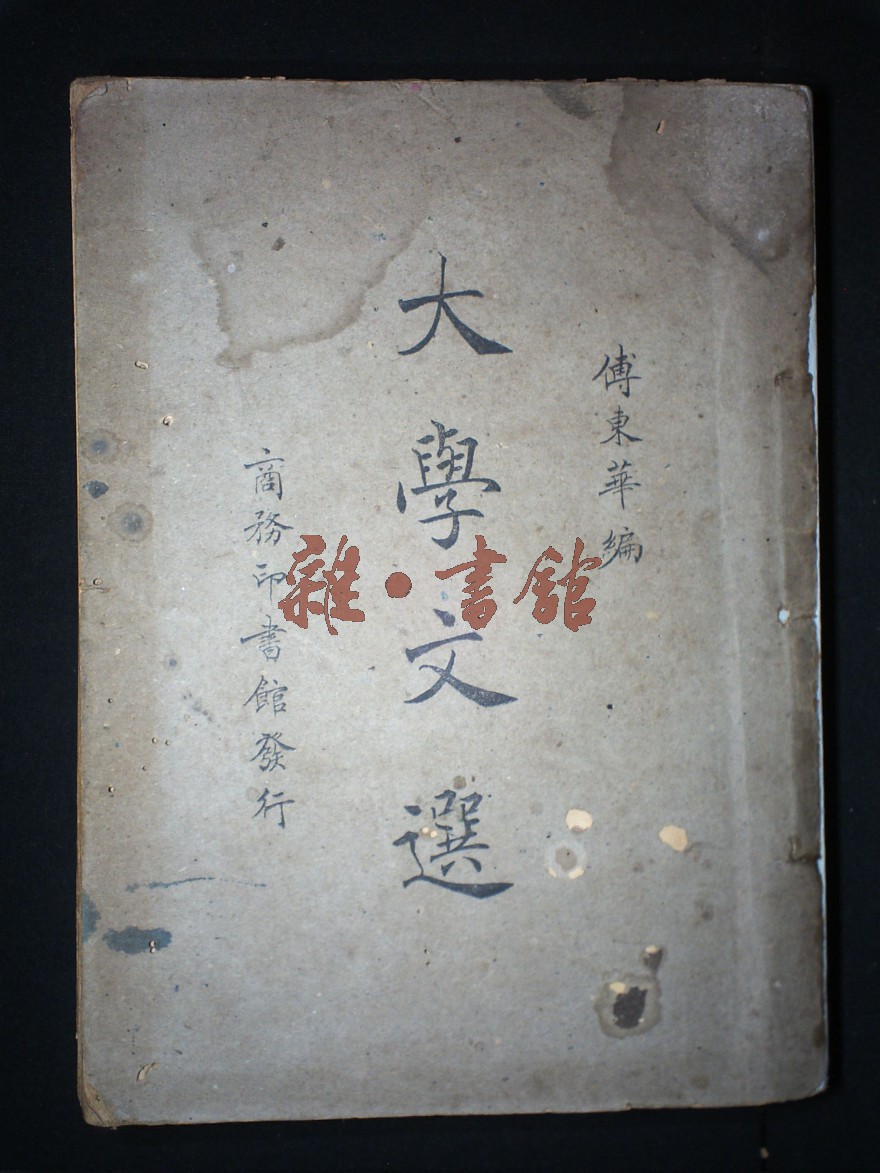 傅東華編
大學文選
商務印書館發行
雜·書館